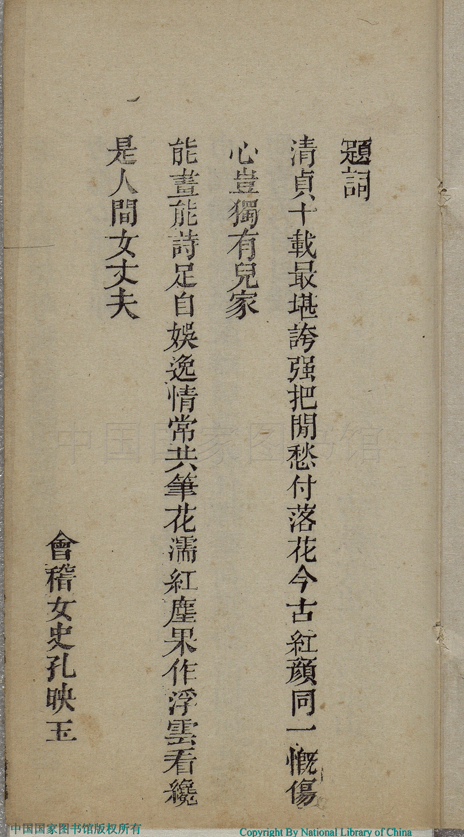 題詞
清貞十載最堪誇强把閒愁付落花今古紅顔同一慨傷
心豈獨有兒家
能畫能詩足自娛逸情常共筆花濡紅塵果作浮雲看纔
是人間女丈夫
會稽女史孔映玉
中国国家图书馆
中国国家图书馆版权所有
Copyright By National Library of China